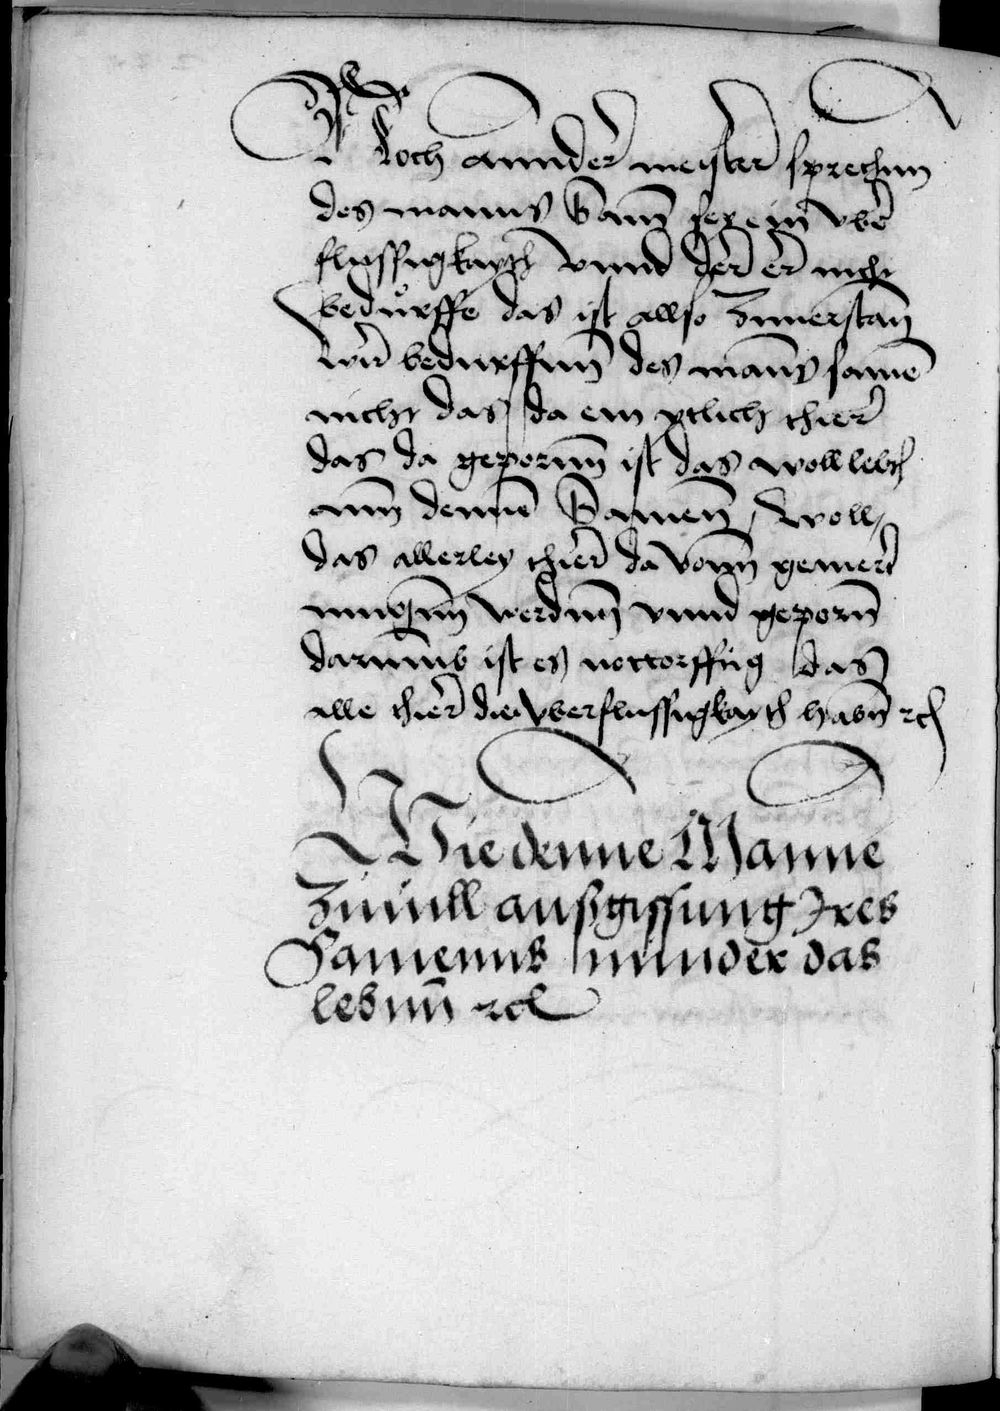 Noch annder meister sprechnn
des manns Samē sey ein vber
flussigkayth vnnd der er nicht
bedůrffe das ist allso zuuerstan̄
wir bedurffnn̄ des manns samē
nicht das da ein ytlich thier
das da gepornn̄ ist das woll lebth
ann dennē Samen̄ / woll /
das allerley thier da vonn gemert
mugnn̄ werdnn̄ vnnd geporn̄
darumb ist es nottorfftig das
alle thier die vberflussigkayth habn̄ rc
Wie denne Manne
Zuuill ausgissung Ires
Samenns minnder das
lebnn̄ rc